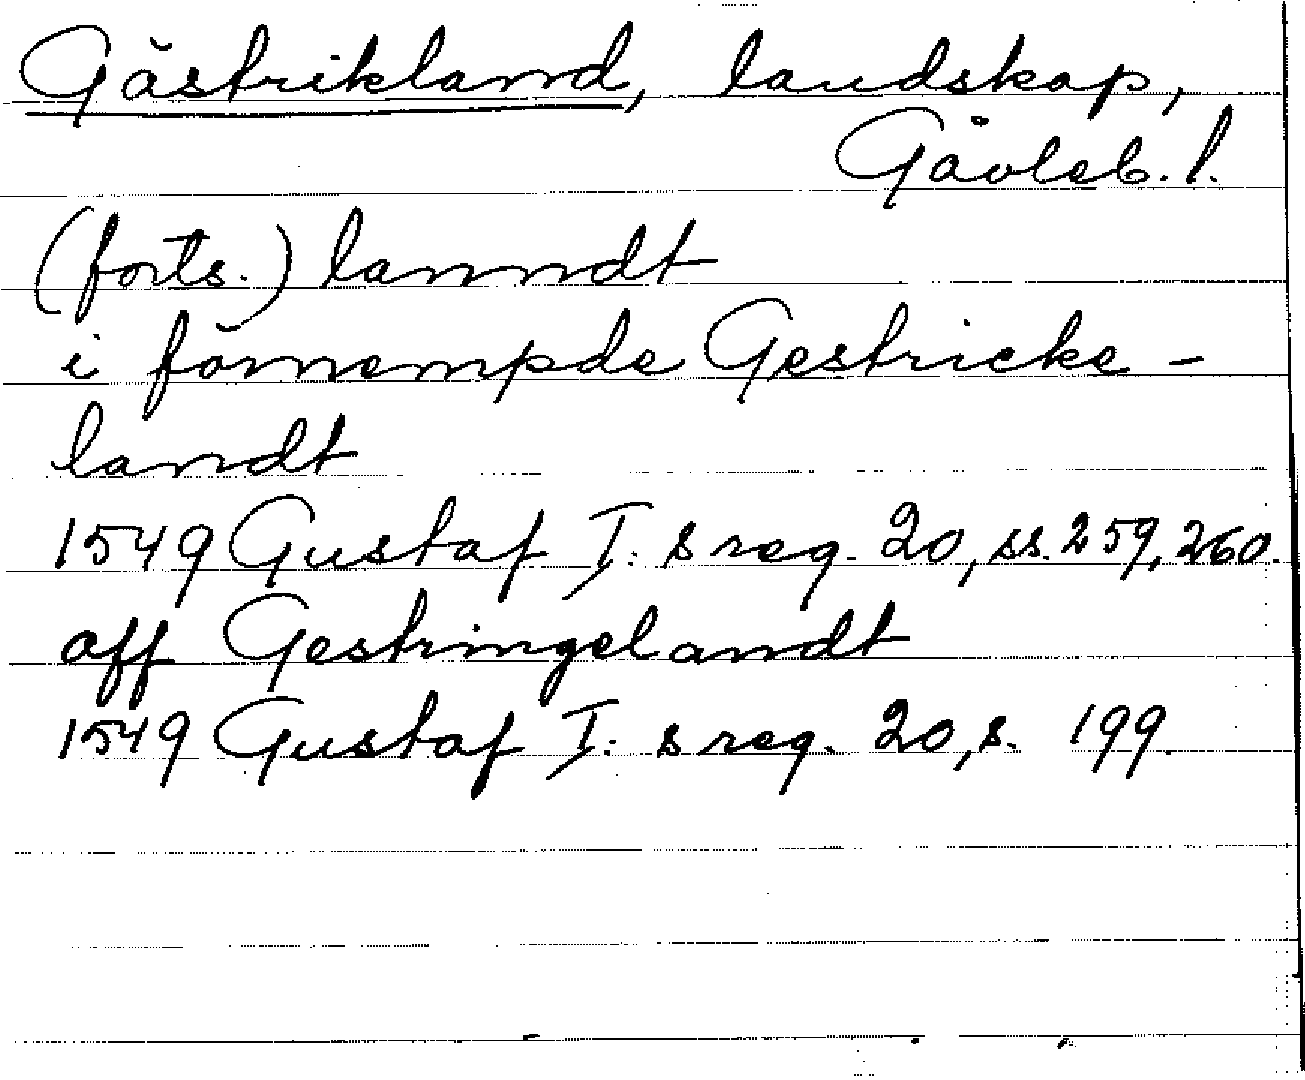 Gästrikland, landskap,
Gävleb. l.
(forts.) lanndt
i förnempde Gestricke-
landt
1549 Gustaf I:s reg. 20, ss. 259, 260.
aff Gestringelandt
1549 Gustaf I:s reg. 20, s. 199.